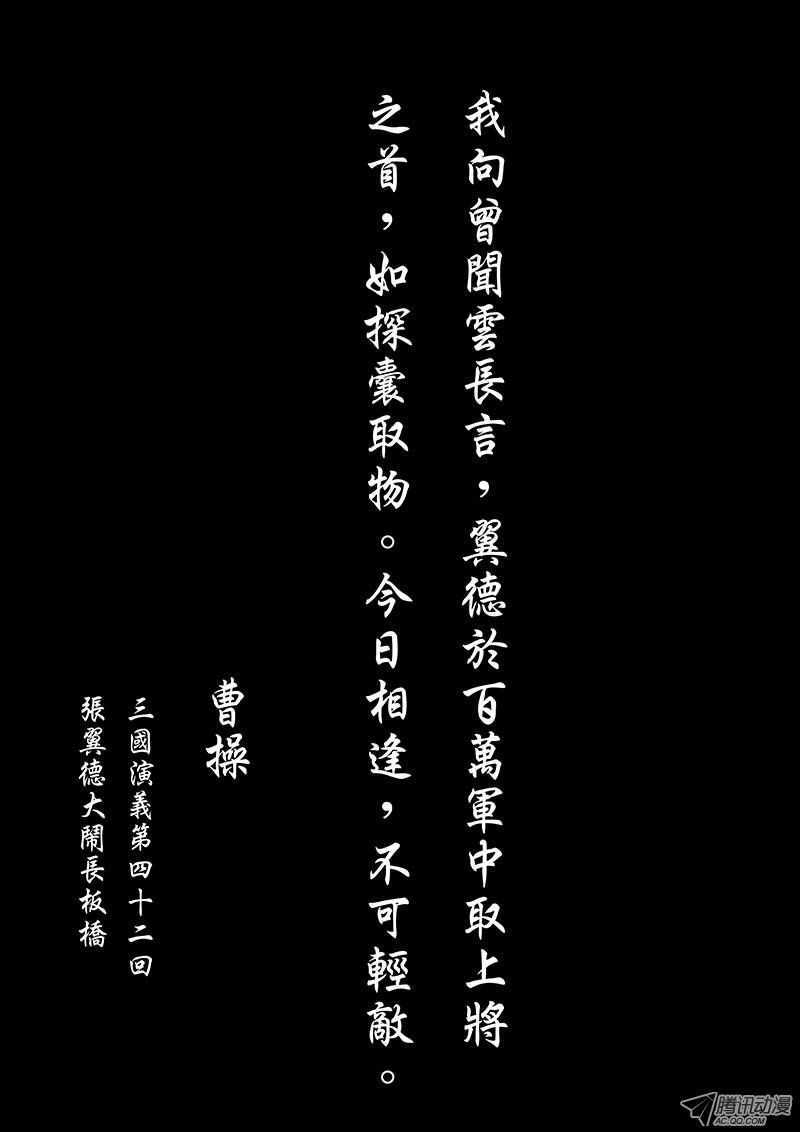 我向曾聞雲長言，翼德於百萬軍中取上將
之首，如探囊取物。今日相逢，不可輕敵。
曹操
三國演義第四十二回
張翼德大鬧長板橋
腾讯动漫
AC.QQ.COM